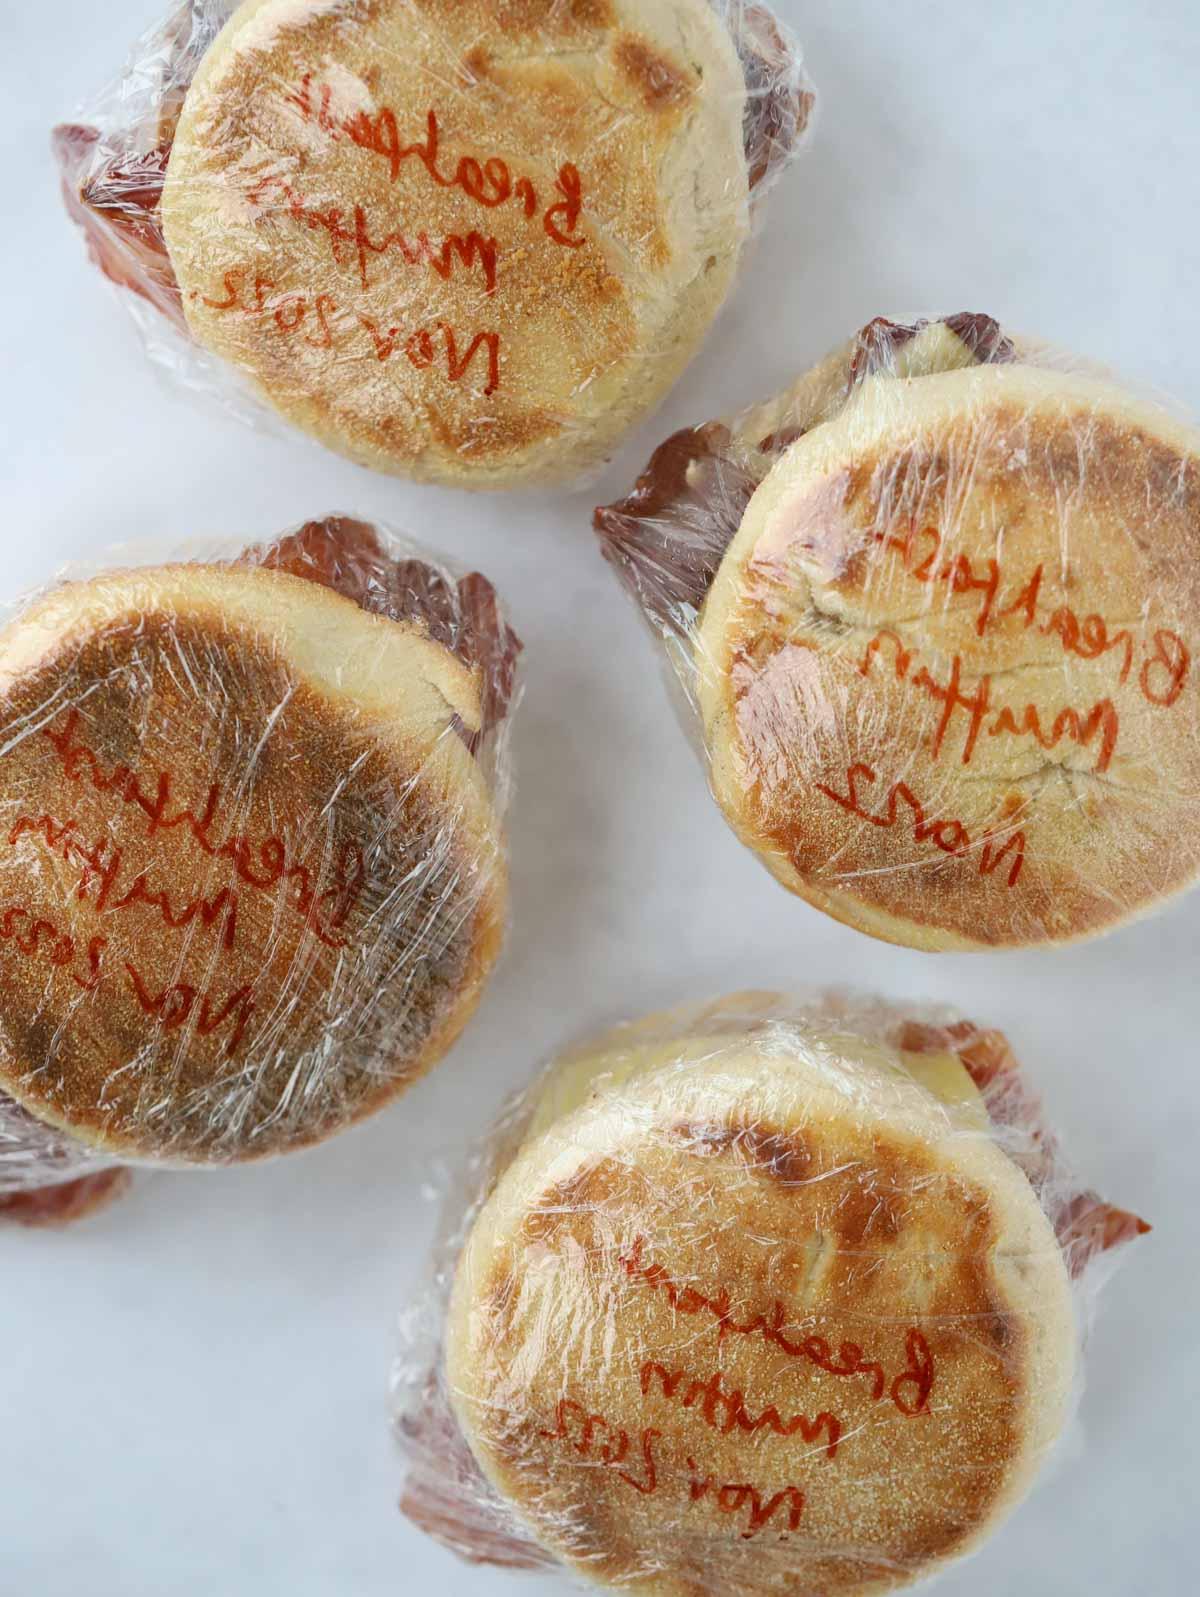 Breakfast
muffin
Nov 2022
Breakfast
muffin
Nov 22
Breakfast
muffin
Nov 2022
Breakfast
muffin
Nov 2022